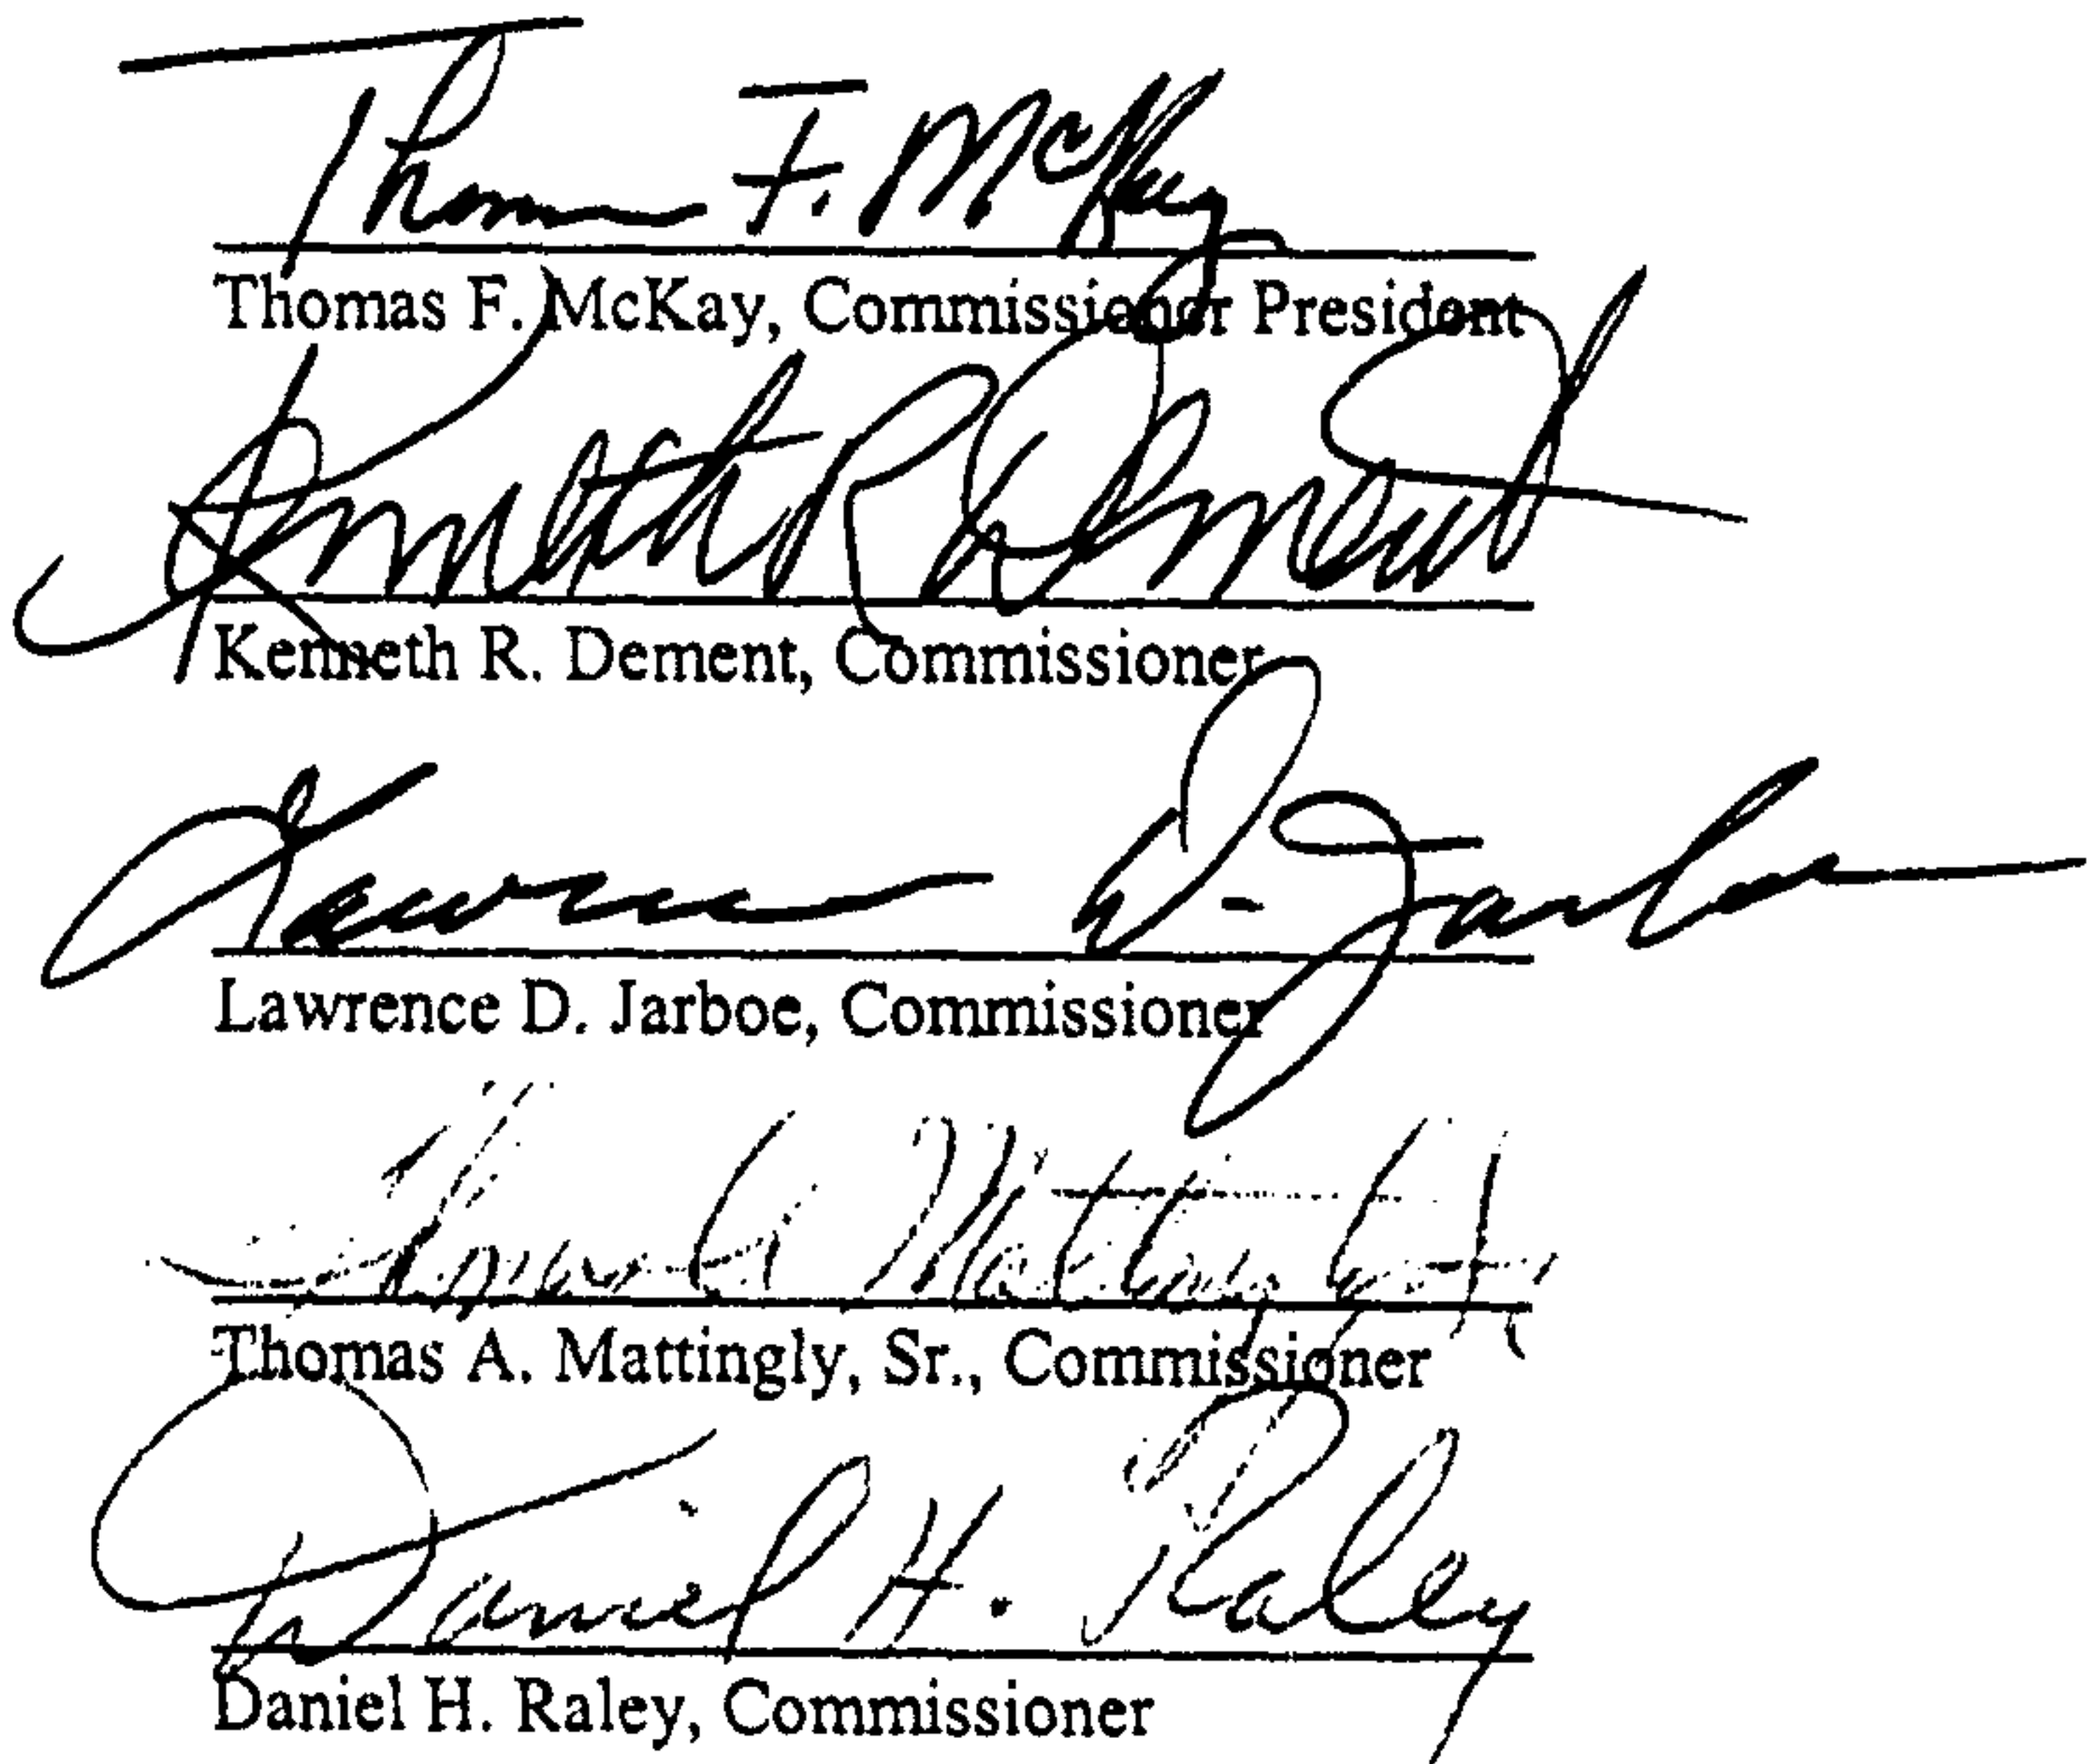 Thomas F. McKay
Thomas F. McKay, Commissioner President
Kenneth R. Dement
Kenneth R. Dement, Commissioner
Lawrence D. Jarboe
Lawrence D. Jarboe, Commissioner
Thomas A. Mattingly, Sr.
Thomas A. Mattingly, Sr., Commissioner
Daniel H. Raley
Daniel H. Raley, Commissioner